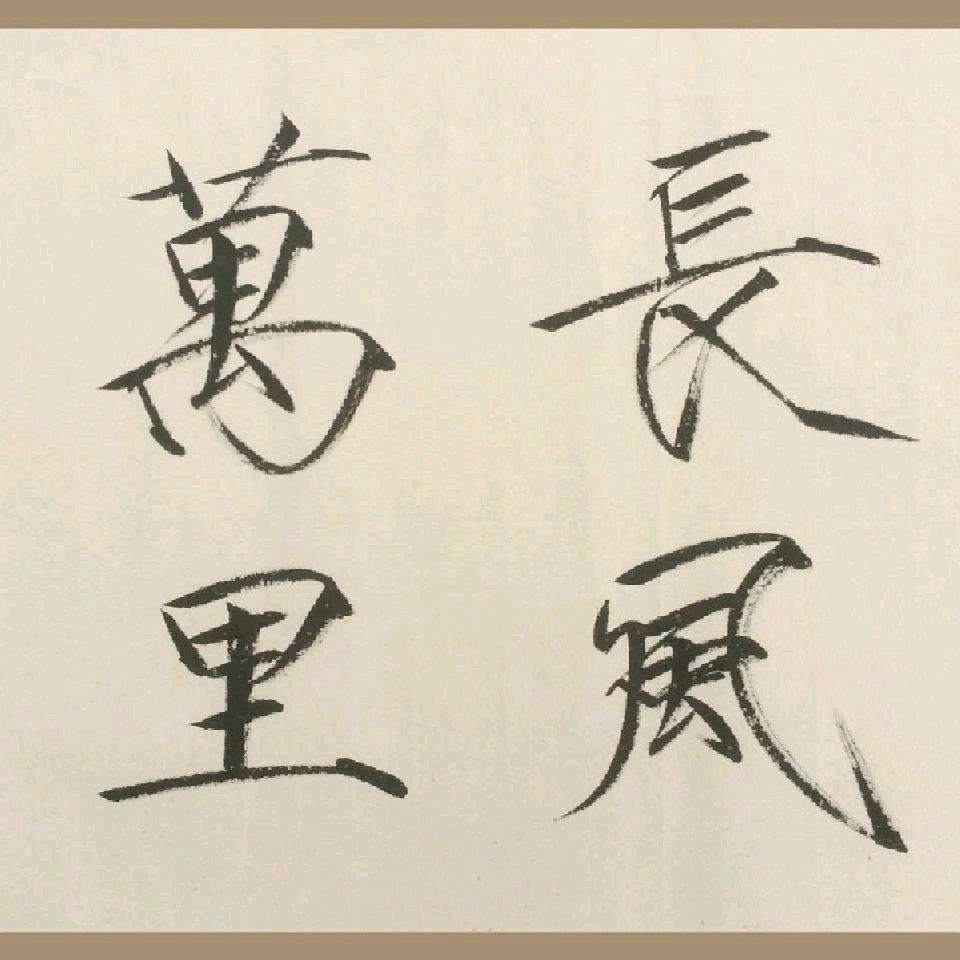 長風
萬里